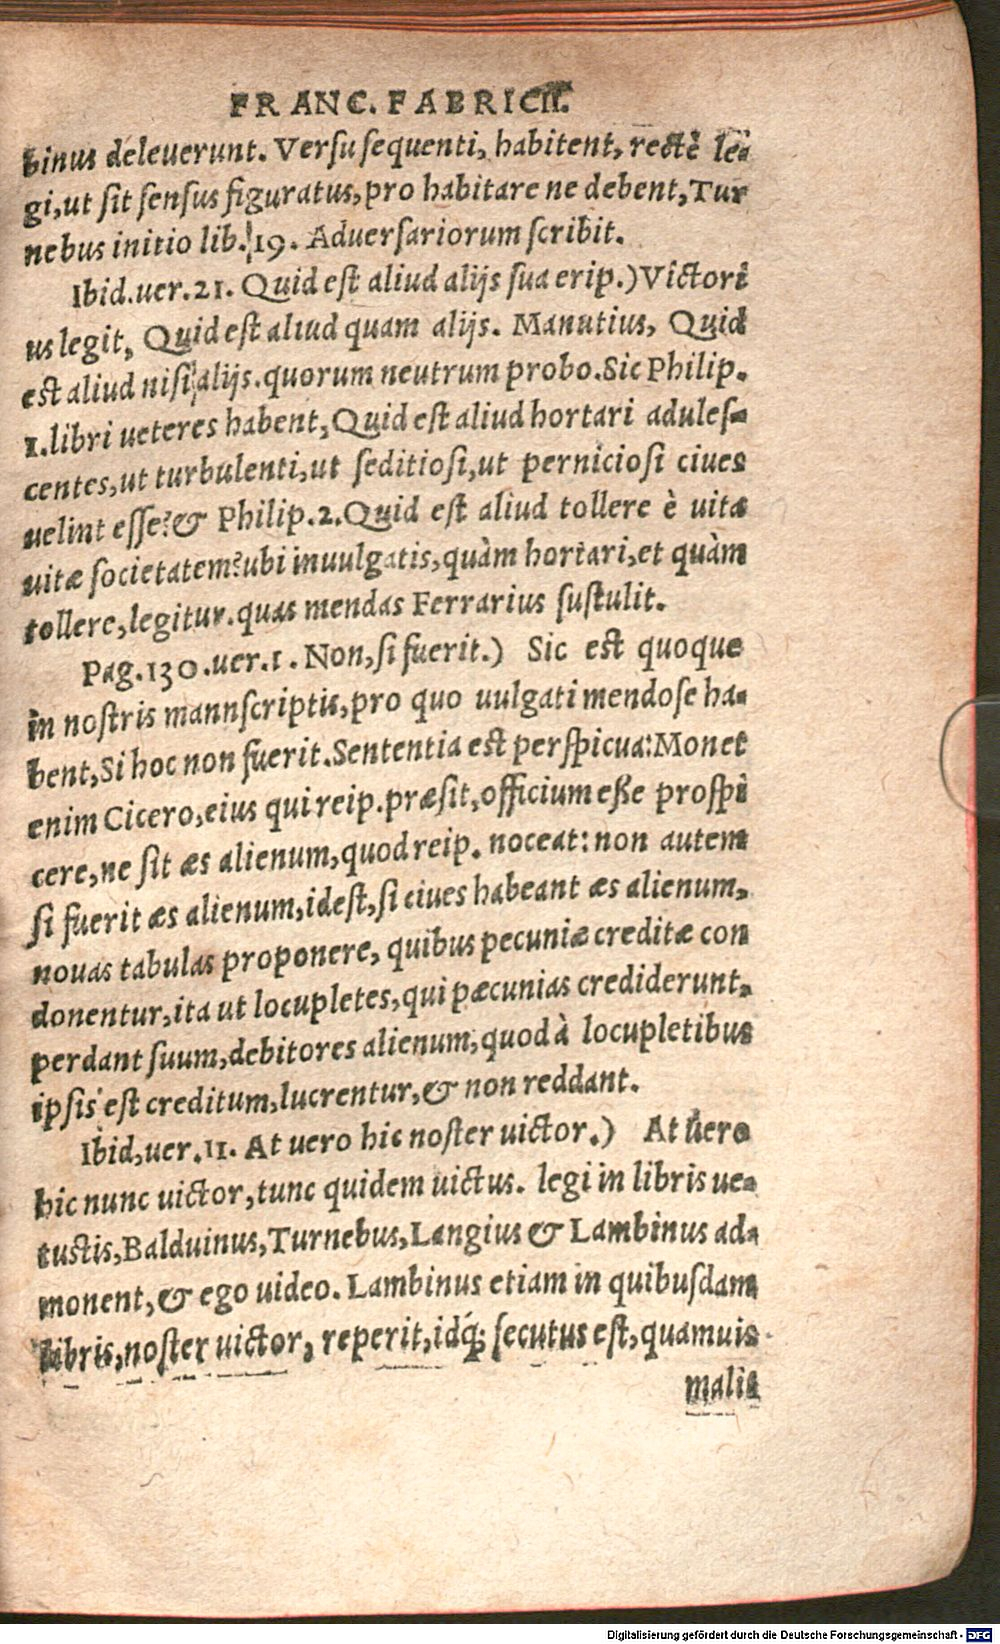 FRANC. FABRICII.
binus deleuerunt. Versu sequenti, habitent, rectè le-
gi, ut sit sensus figuratus, pro habitare ne debent, Tur
nebus initio lib. 19. Aduersariorum scribit.
Ibid. uer. 21. Quid est aliud alijs sua erip.) Victori
us legit, Quid est aliud quam alijs. Manutius, Quid
est aliud nisi alijs. quorum neutrum probo. Sic Philip.
1. libri ueteres habent, Quid est aliud hortari adules-
centes, ut turbulenti, ut seditiosi, ut perniciosi ciues
uelint esse? & Philip. 2. Quid est aliud tollere è uita
uitæ societatem? ubi in uulgatis, quàm hortari, et quàm
tollere, legitur. quas mendas Ferrarius sustulit.
Pag. 130. uer. 1. Non, si fuerit.) Sic est quoque
in nostris mannscriptis, pro quo uulgati mendose ha-
bent, Si hoc non fuerit. Sententia est perspicua: Monet
enim Cicero, eius qui reip. præsit, officium eße prospi
cere, ne sit æs alienum, quod reip. noceat: non autem
si fuerit æs alienum, idest, si ciues habeant æs alienum,
nouas tabulas proponere, quibus pecuniæ creditæ con
donentur, ita ut locupletes, qui pæcunias crediderunt,
perdant suum, debitores alienum, quod à locupletibus
ipsis est creditum, lucrentur, & non reddant.
Ibid, uer. 11. At uero hic noster uictor.) At uero
hic nunc uictor, tunc quidem uictus. legi in libris ue-
tustis, Balduinus, Turnebus, Langius & Lambinus ad-
monent, & ego uideo. Lambinus etiam in quibusdam
libris, noster uictor, reperit, idq́; secutus est, quamuis
malis
Digitalisierung gefördert durch die Deutsche Forschungsgemeinschaft - DFG